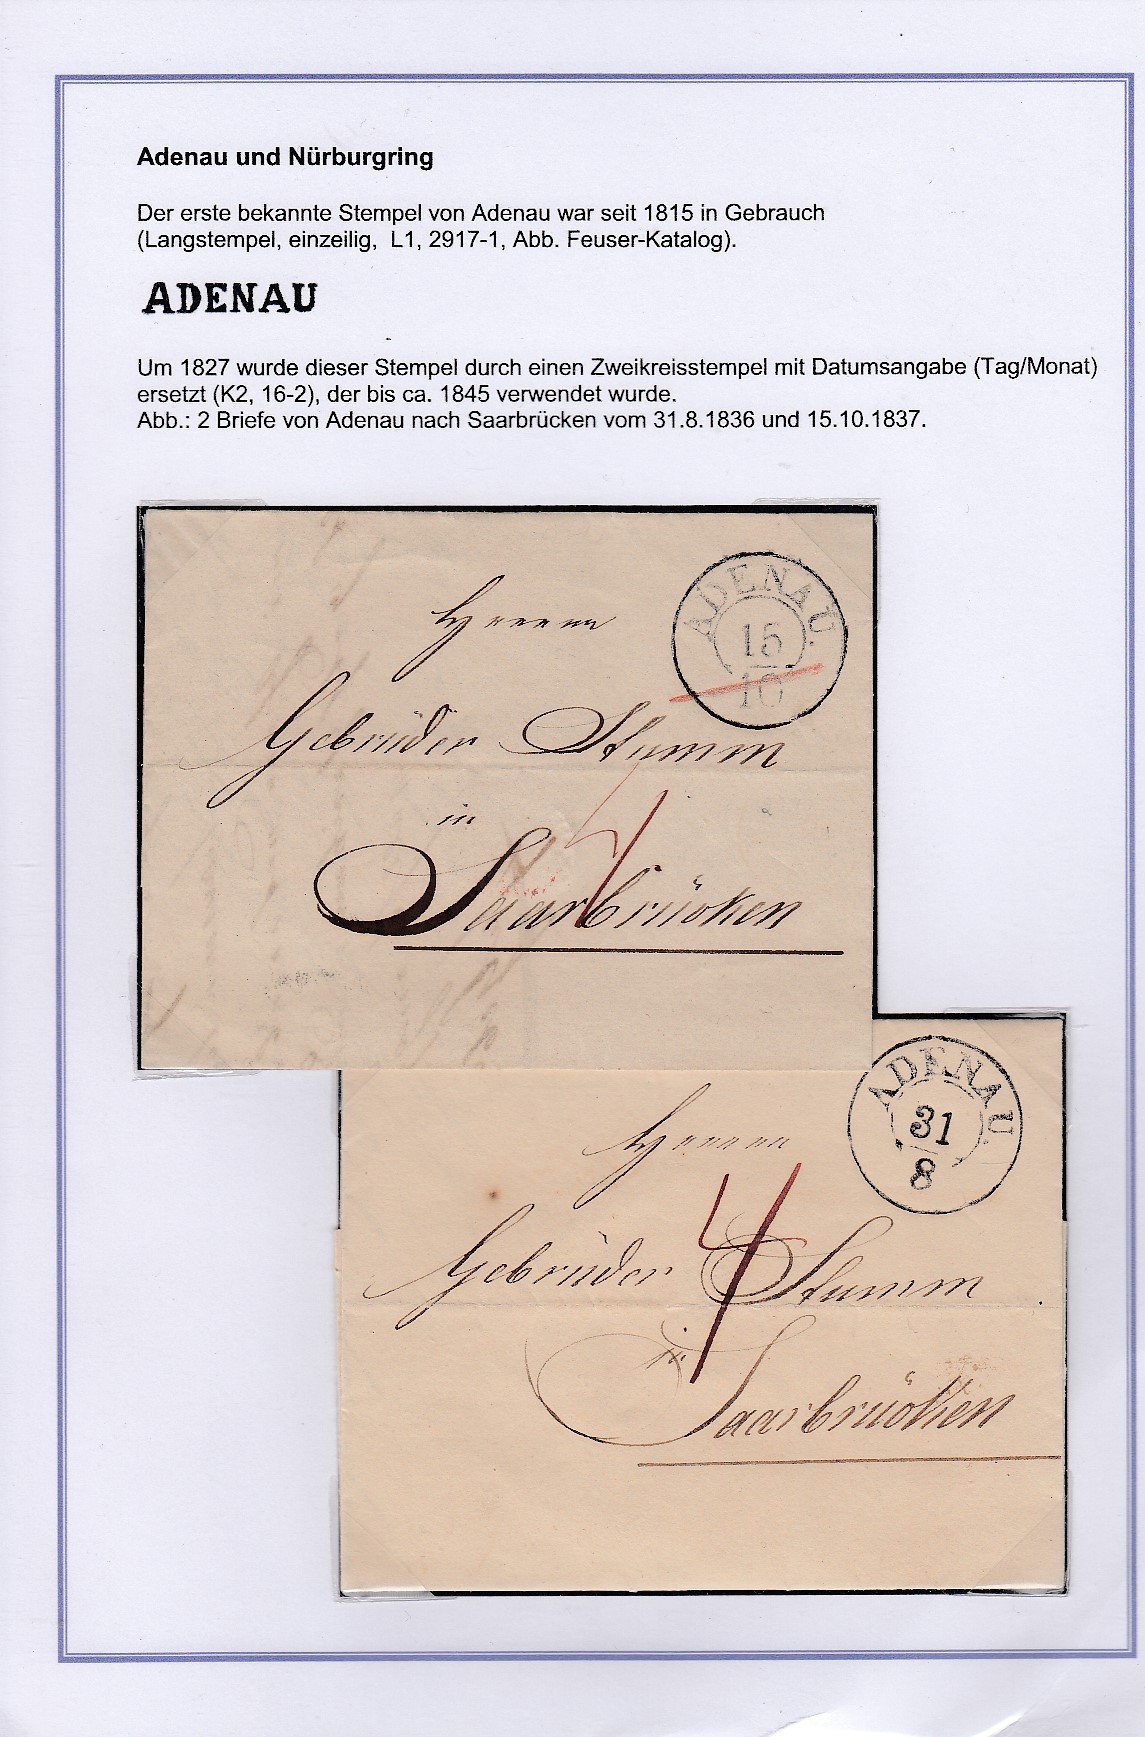 Adenau und Nürburgring
Der erste bekannte Stempel von Adenau war seit 1815 in Gebrauch
(Langstempel, einzeilig, L1, 2917-1, Abb. Feuser-Katalog).
ADENAU
Um 1827 wurde dieser Stempel durch einen Zweikreisstempel mit Datumsangabe (Tag/Monat)
ersetzt (K2, 16-2), der bis ca. 1845 verwendet wurde.
Abb.: 2 Briefe von Adenau nach Saarbrücken vom 31.8.1836 und 15.10.1837.
ADENAU.
15
10
Herren
Gebrüder Stumm
in
4
Saarbrücken
ADENAU.
31
8
Herren
4
Gebrüder Stumm
in
Saarbrücken